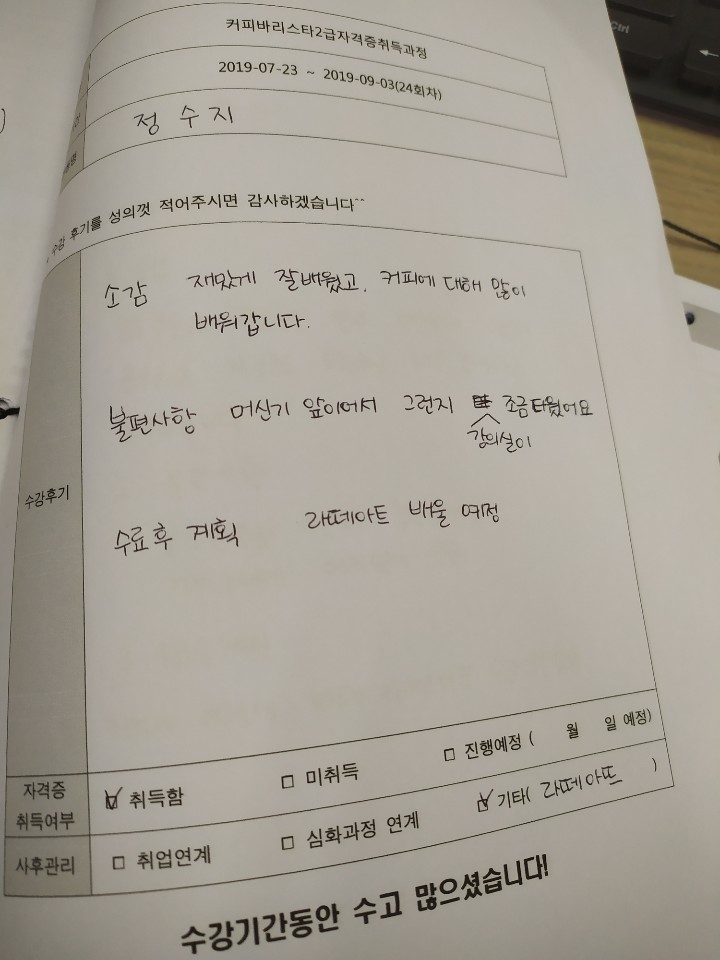 커피바리스타2급자격증취득과정
2019-07-23 ~ 2019-09-03(24회차)
정수지
수강 후기를 성의껏 적어주시면 감사하겠습니다^^
수강후기
소감 재밌게 잘배웠고, 커피에 대해 많이
배워갑니다.
불편사항 머신기 앞이어서 그런지 조금더웠어요
강의실이
수료후 계획 라떼아트 배울 예정
자격증
취득여부
☑ 취득함 □ 미취득 □ 진행예정 ( 월 일 예정)
사후관리 □ 취업연계 □ 심화과정 연계 ☑ 기타( 라떼아뜨 )
수강기간동안 수고 많으셨습니다!
Ctrl